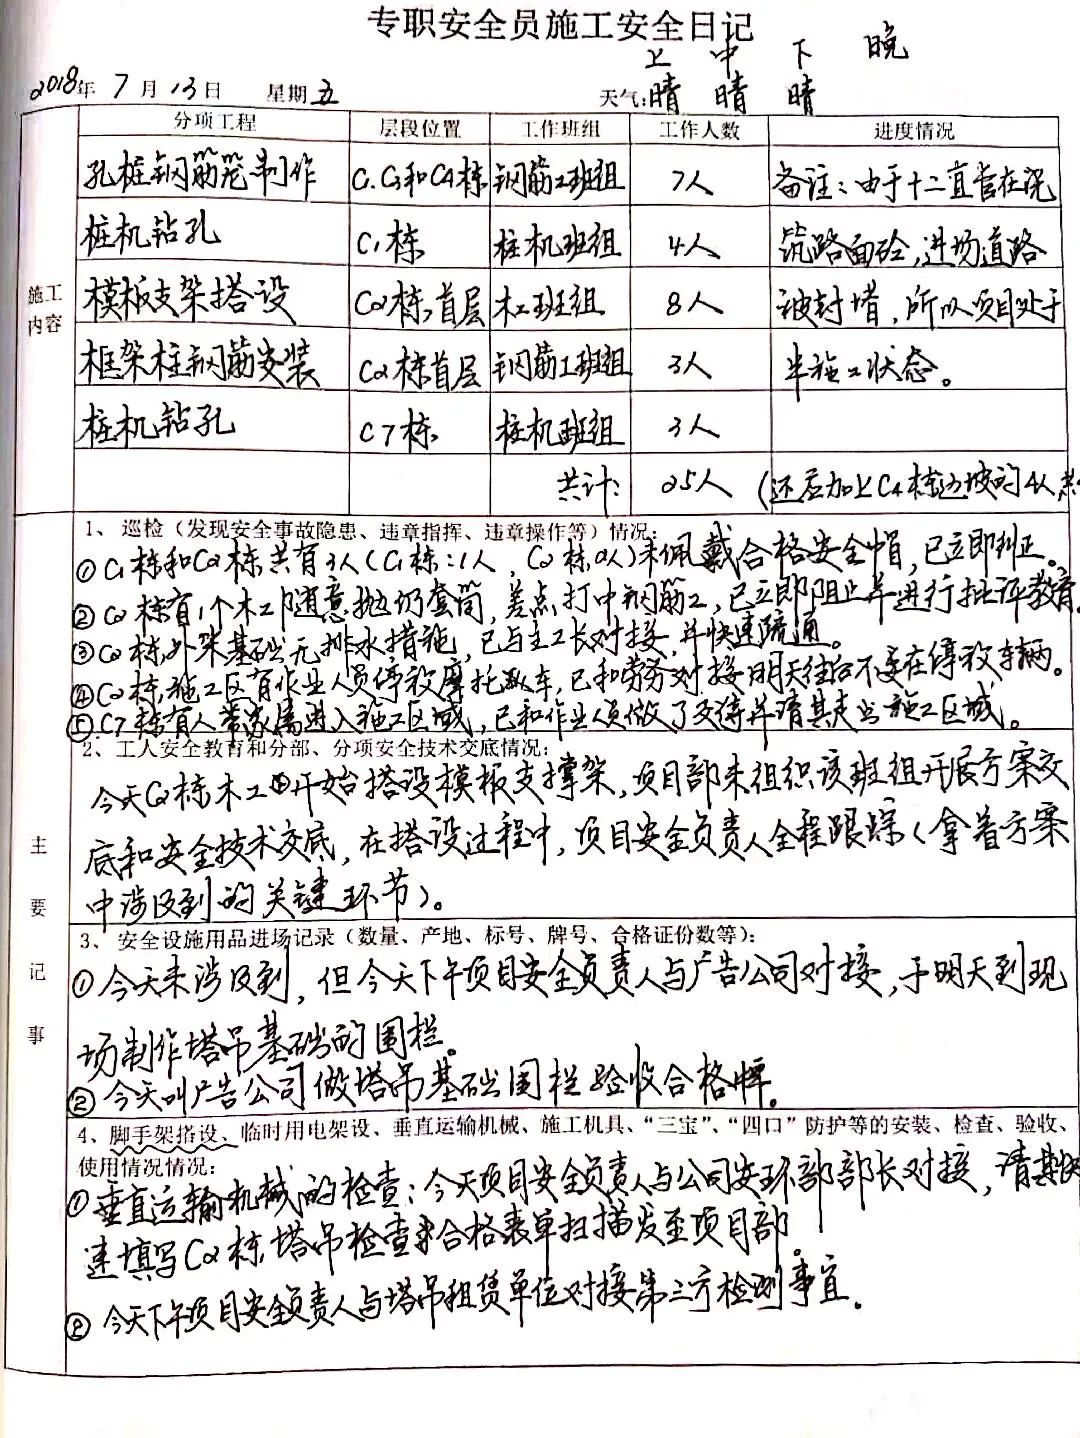 专职安全员施工安全日记
上 中 下 晚
2018年 7月 13日 星期五 天气:晴 晴 晴
分项工程 层段位置 工作班组 工作人数 进度情况
孔桩钢筋笼制作 C1.C3和C4栋 钢筋工班组 7人 备注:由于十二直管在浇
桩机钻孔 C1栋 桩机班组 4人 筑路面砼,进场道路
施工内容
模板支架搭设 C2栋,首层 木工班组 8人 被封堵,所以项目处于
框架柱钢筋安装 C2栋首层 钢筋工班组 3人 半施工状态。
桩机钻孔 C7栋 桩机班组 3人
共计: 25人 (还应加上C4栋边坡的4人
1、巡检(发现安全事故隐患、违章指挥、违章操作等)情况:
①C1栋和C2栋共有3人(C1栋:1人,C2栋2人)未佩戴合格安全帽,已立即纠正。
②C2栋有1个木工随意抛扔套筒,差点打中钢筋工,已立即阻止并进行批评教育
③C2栋,外架基础无排水措施,已与主工长对接,并快速疏通。
④C2栋,施工区有作业人员停放摩托车,已和劳务对接明天往后不要在停放车辆。
⑤C7栋有人带家属进入施工区域,已和作业人员做了交待并请其走出施工区域。
2、工人安全教育和分部、分项安全技术交底情况:
今天C2栋木工开始搭设模板支撑架,项目部未组织该班组开展方案交
底和安全技术交底,在搭设过程中,项目安全负责人全程跟踪(拿着方案
中涉及到的关键环节)。
主要记事
3、安全设施用品进场记录(数量、产地、标号、牌号、合格证份数等):
①今天未涉及到,但今天下午项目安全负责人与广告公司对接,于明天到现
场制作塔吊基础的围栏。
②今天叫广告公司做塔吊基础围栏验收合格牌。
4、脚手架搭设、临时用电架设、垂直运输机械、施工机具、“三宝”、“四口”防护等的安装、检查、验收、
使用情况情况:
①垂直运输机械的检查:今天项目安全负责人与公司安环部部长对接,请其快
速填写C2栋,塔吊检查合格表单扫描发至项目部。
②今天下午项目安全负责人与塔吊租赁单位对接第三方检测事宜。